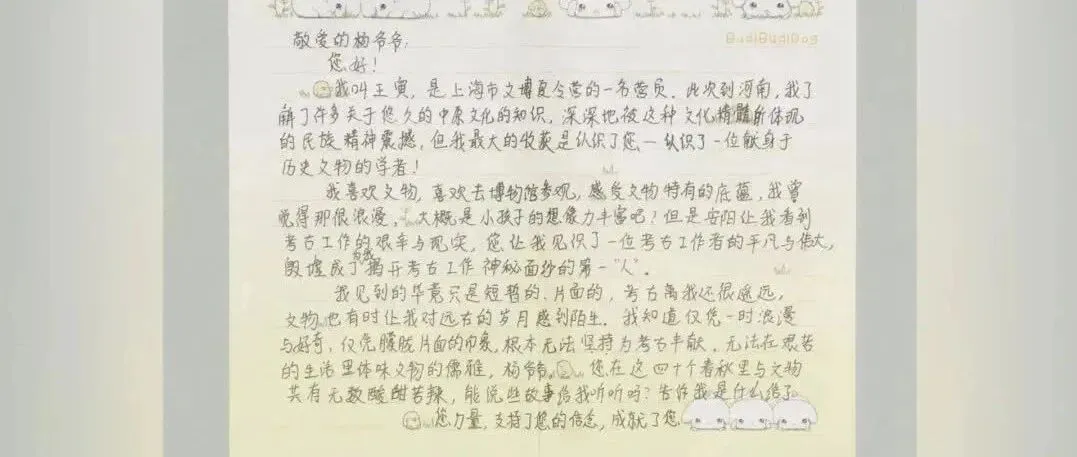 BudiBudiDog
敬爱的杨爷爷:
您好!
我叫王寅,是上海市文博夏令营的一名营员。此次到河南,我了
解了许多关于悠久的中原文化的知识,深深地被这种文化精髓所体现
的民族精神震撼,但我最大的收获是认识了您——认识了一位献身于
历史文物的学者!
我喜欢文物,喜欢去博物馆参观,感受文物特有的底蕴,我曾
觉得那很浪漫,大概是小孩子的想像力丰富吧?但是安阳让我看到
考古工作的艰辛与现实,您让我见识了一位考古工作者的平凡与伟大,
殷墟成了为我揭开考古工作神秘面纱的第一"人"。
我见到的毕竟只是短暂的、片面的,考古离我还很遥远,
文物也有时让我对远古的岁月感到陌生。我知道仅凭一时浪漫
与好奇,仅凭朦胧片面的印象,根本无法坚持为考古奉献,无法在艰苦
的生活里体味文物的儒雅,杨爷爷,您在这四十个春秋里与文物
共有无数酸甜苦辣,能说些故事给我听听吗?告诉我是什么给了
您力量,支持了您的信念,成就了您